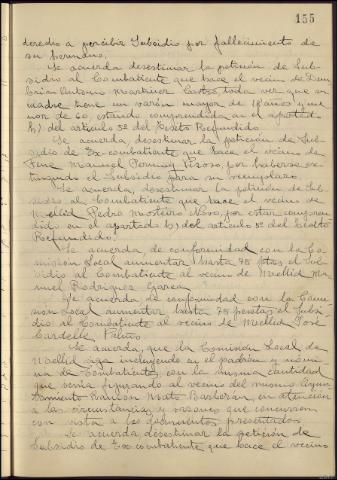 155
derecho a percibir Subsidio por fallecimiento de
su hermano.
Se acuerda desestimar la petición de Sub-
sidio al Combatiente que hace el vecino de Dum
bría Antonio Martinez Castro, toda vez que su
madre tiene un varón mayor de 18 años y me
nor de 60, estando comprendida en el apartado
b) del articulo 5º del Texto Refundido.
Se acuerda, desestimar la petición de Sub-
sidio de Ex-combatiente que hace el vecino de
Fene Manuel Permuy Piñoso, por haberse ex-
tinguido el Subsidio para su reemplazo.
Se acuerda, desestimar la petición de Sub-
sidio al Combatiente que hace el vecino de
Mellid Pedro Mosteiro Novo, por estar compren
dido en el apartado b) del articulo 5º del Texto
Refundido.
Se acuerda de conformidad con la Co-
mision Local aumentar hasta 75 ptas, el Sub-
sidio al Combatiente al vecino de Mellid Ma
nuel Rodriguez Garea.
Se acuerda de conformidad con la Comi
sion Local aumentar hasta 75 pesetas el Subsi-
dio al Combatiente al vecino de Mellid José
Cardelle
Se acuerda, que la Comision Local de
Mellid siga incluyendo en el padrón y nomi
na de Combatientes, con la misma cantidad
que venia figurando al vecino del mismo Ayun
tamiento Ramon Mato Barberan, en atencion
a las circunstancias y razones que concurren
con vista a los documentos presentados.
Se acuerda desestimar la petición de
Subsidio de Ex-combatiente que hace el vecino